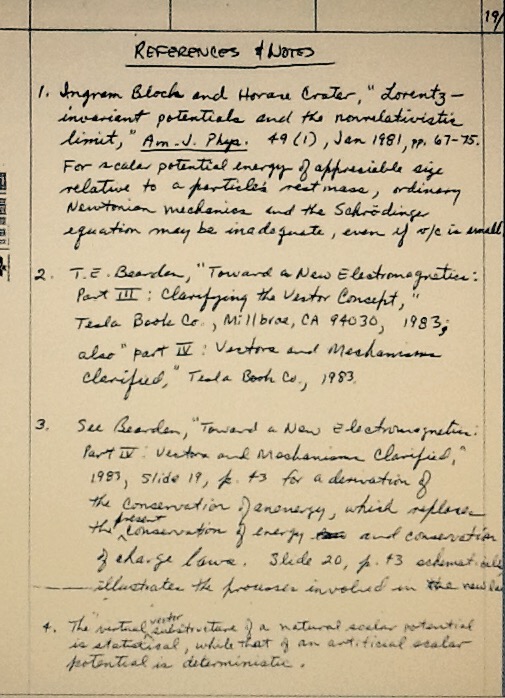 19/
REFERENCES & NOTES
1. Ingram Block and Horace Crater, "Lorentz-
invariant potentials and the nonrelativistic
limit," Am. J. Phys. 49(1), Jan 1981, pp. 67-75.
For scalar potential energy of appreciable size
relative to a particle's rest mass, ordinary
Newtonian mechanics and the Schrödinger
equation may be inadequate, even if v/c is small
2. T.E. Bearden, "Toward a New Electromagnetics:
Part III: Clarifying the Vector Concept,"
Tesla Book Co., Millbrae, CA 94030, 1983;
also "Part IV: Vectors and Mechanisms
Clarified," Tesla Book Co., 1983.
3. See Bearden, "Toward a New Electromagnetics:
Part IV: Vectors and Mechanisms Clarified,"
1983, Slide 19, p. 43 for a derivation of
the conservation of anenergy, which replaces
the present conservation of energy and conservation
of charge laws. Slide 20, p. 43
illustrates the processes involved in the new
4. The "virtual vector substructure of a natural scalar potential
is statistical, while that of an artificial scalar
potential is deterministic.